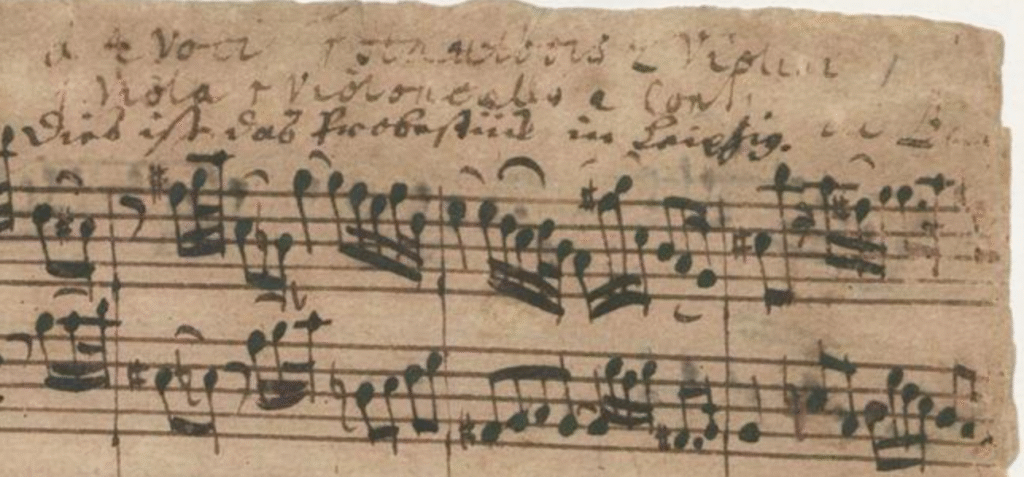 a 4 Voci 1 Hautbois 2 Violini
Viola e Violoncello e Cont.
Dies ist das Probestück in Leipzig.